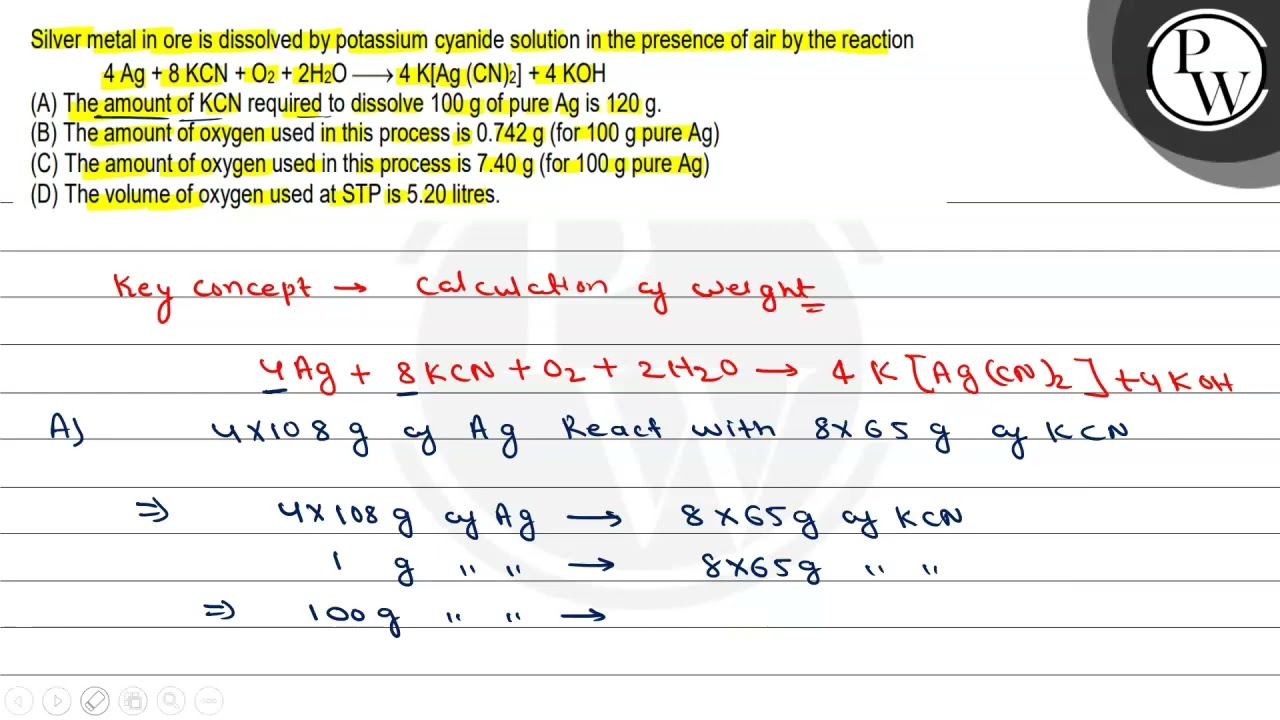 Silver metal in ore is dissolved by potassium cyanide solution in the presence of air by the reaction
4 Ag + 8 KCN + O₂ + 2H₂O ⟶ 4 K[Ag (CN)₂] + 4 KOH
(A) The amount of KCN required to dissolve 100 g of pure Ag is 120 g.
(B) The amount of oxygen used in this process is 0.742 g (for 100 g pure Ag)
(C) The amount of oxygen used in this process is 7.40 g (for 100 g pure Ag)
(D) The volume of oxygen used at STP is 5.20 litres.
P
W
Key concept → Calculation of weight
4Ag + 8KCN + O2 + 2H2O → 4 K[Ag(CN)2] + 4KOH
A) 4×108 g of Ag React with 8×65 g of KCN
⇒ 4×108 g of Ag → 8×65g of KCN
1 g " " → 8×65g " "
⇒ 100g " " →